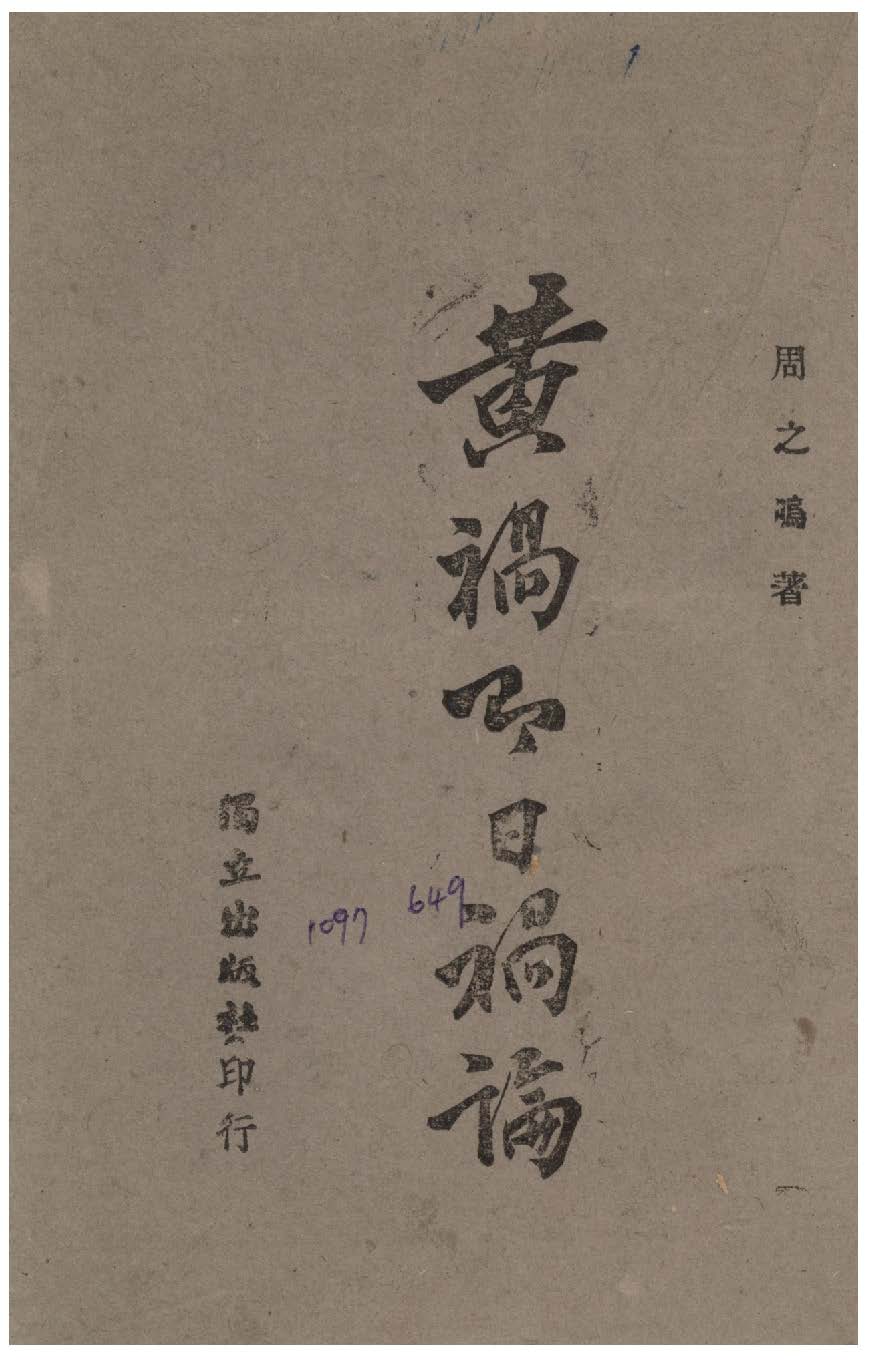 周之鳴著
黃禍即日禍論
獨立出版社印行
649
1097